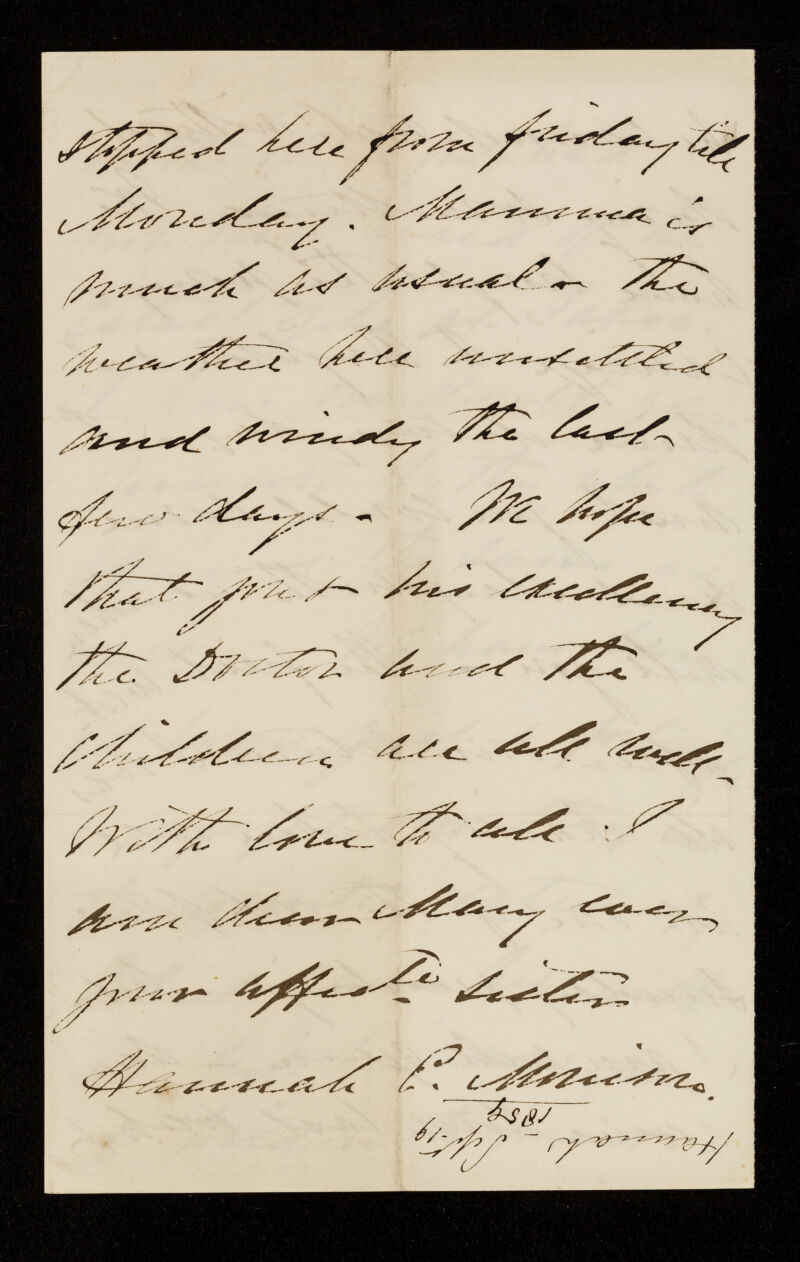 stopped here from friday till
Monday. Mamma is
much as usual - the
weather here unsettled
and windy the last
few days - We hope
that you & his excellency
the Doctor and the
children are all well -
With love to all I
am dear Mary ever
your affect.te sister
Hannah E. Morison.
Hannah - Sept. 19
1859